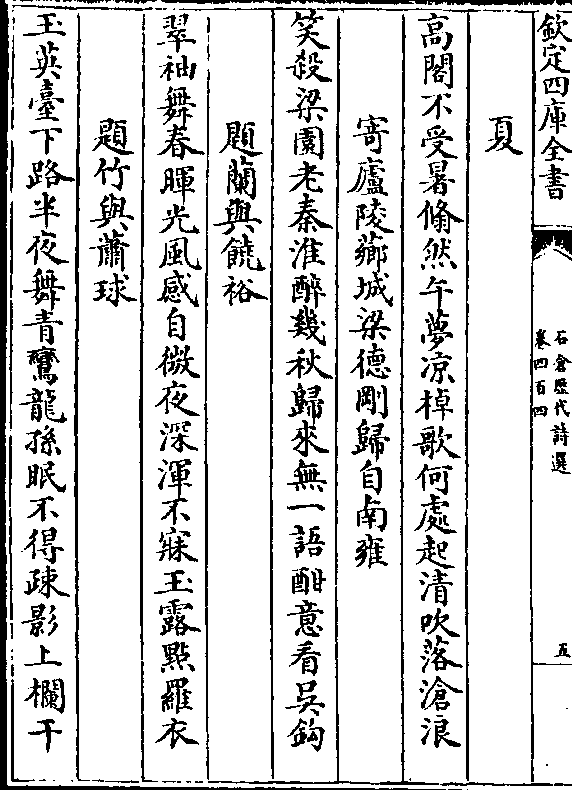 欽定四庫全書
石倉歷代詩選
卷四百四
五
夏
高閣不受暑翛然午夢凉棹歌何處起清吹落滄浪
寄廬陵薌城梁德剛歸自南雍
笑殺梁園老秦淮醉幾秋歸來無一語酣意看吳鈎
題蘭與饒裕
翠袖舞春暉光風感自微夜深渾不寐玉露點羅衣
題竹與蕭球
玉英臺下路半夜舞青鸞龍孫眠不得疎影上欄干